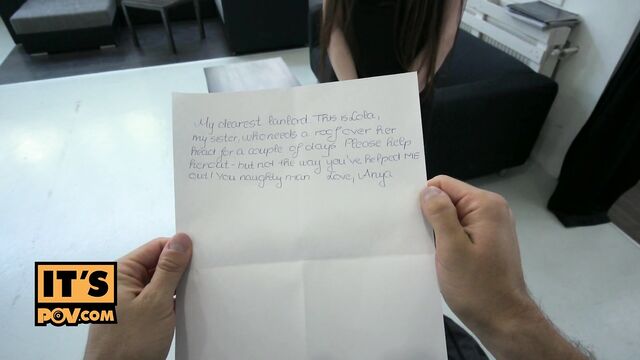 My dearest lanlord. This is Lola,
my sister, who needs a roof over her
head for a couple of days. Please help
her out - but not the way you've helped ME
out! You naughty man Love, Anya
IT'S
POV.COM